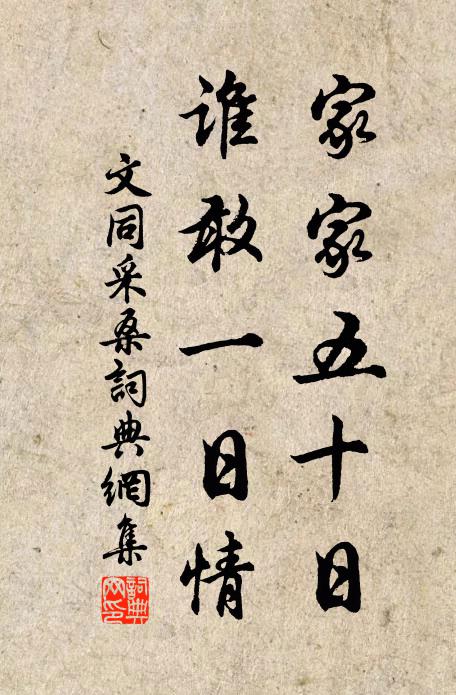 家家五十日
誰敢一日情
文同采桑詞典網集
詞典
网印